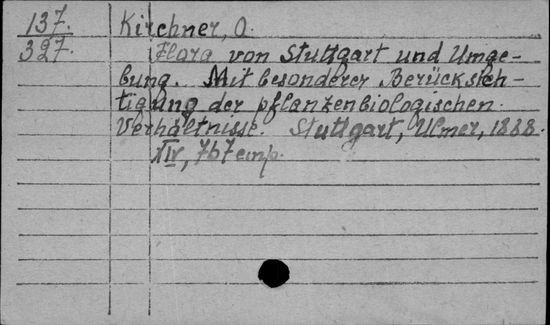 137. Kirchner, O.
327. Flora von Stuttgart und Umge-
bung. Mit besonderer Berücksich-
tigung der pflanzenbiologischen
Verhältnisse. Stuttgart, Ulmer, 1888.
XIV, 767 стр.